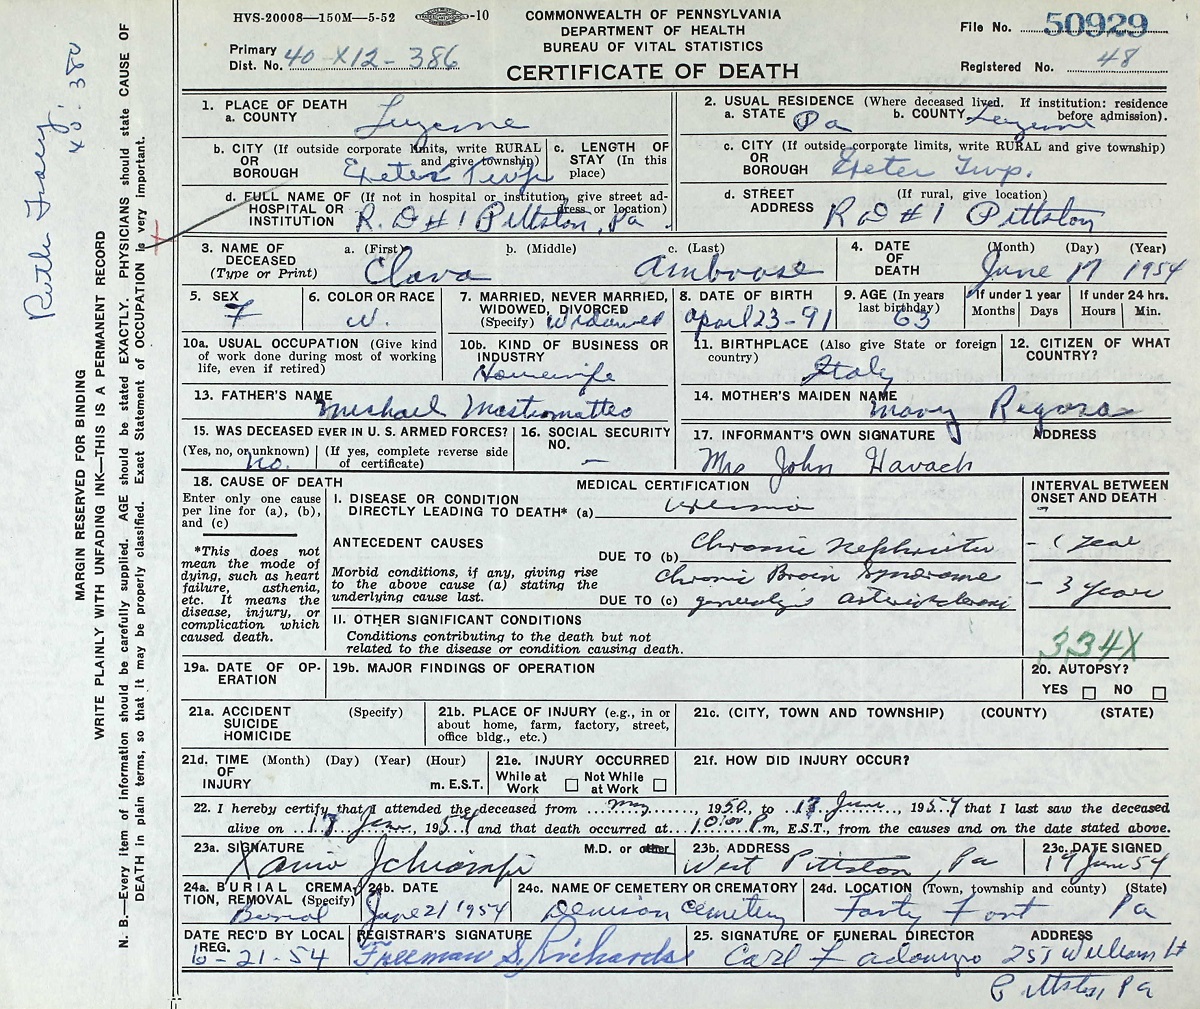 HVS-20008—150M—5-52 -10
COMMONWEALTH OF PENNSYLVANIA
DEPARTMENT OF HEALTH
BUREAU OF VITAL STATISTICS
CERTIFICATE OF DEATH
File No. 50929
Primary Dist. No. 40-X12-386
Registered No. 48
1. PLACE OF DEATH
a. COUNTY Luzerne
2. USUAL RESIDENCE (Where deceased lived. If institution: residence before admission).
a. STATE Pa b. COUNTY Luzerne
b. CITY (If outside corporate limits, write RURAL and give township) OR BOROUGH Exeter Twp.
c. LENGTH OF STAY (In this place)
c. CITY (If outside corporate limits, write RURAL and give township) OR BOROUGH Exeter Twp.
d. FULL NAME OF (If not in hospital or institution, give street address or location) HOSPITAL OR INSTITUTION R. D # 1 Pittston, Pa.
d. STREET ADDRESS (If rural, give location) R D # 1 Pittston
3. NAME OF DECEASED (Type or Print)
a. (First) Clara b. (Middle) c. (Last) Ambrose
4. DATE OF DEATH (Month) (Day) (Year) June 17 1954
5. SEX F
6. COLOR OR RACE W.
7. MARRIED, NEVER MARRIED, WIDOWED, DIVORCED (Specify) Widowed
8. DATE OF BIRTH April 23-91
9. AGE (In years last birthday) 63
If under 1 year Months Days
If under 24 hrs. Hours Min.
10a. USUAL OCCUPATION (Give kind of work done during most of working life, even if retired)
10b. KIND OF BUSINESS OR INDUSTRY Housewife
11. BIRTHPLACE (Also give State or foreign country) Italy
12. CITIZEN OF WHAT COUNTRY?
13. FATHER'S NAME Michael Mastromatteo
14. MOTHER'S MAIDEN NAME Mary
15. WAS DECEASED EVER IN U. S. ARMED FORCES?
(Yes, no, or unknown) no. (If yes, complete reverse side of certificate)
16. SOCIAL SECURITY NO. —
17. INFORMANT'S OWN SIGNATURE ADDRESS
Mrs John Havach
18. CAUSE OF DEATH
Enter only one cause per line for (a), (b), and (c)
*This does not mean the mode of dying, such as heart failure, asthenia, etc. It means the disease, injury, or complication which caused death.
MEDICAL CERTIFICATION
INTERVAL BETWEEN ONSET AND DEATH
I. DISEASE OR CONDITION DIRECTLY LEADING TO DEATH* (a) Uremia
ANTECEDENT CAUSES
Morbid conditions, if any, giving rise to the above cause (a) stating the underlying cause last.
DUE TO (b) Chronic Nephritis - 1 year
Chronic Brain Syndrome
DUE TO (c) arteriosclerosis - 3 years
II. OTHER SIGNIFICANT CONDITIONS
Conditions contributing to the death but not related to the disease or condition causing death.
334X
19a. DATE OF OPERATION
19b. MAJOR FINDINGS OF OPERATION
20. AUTOPSY?
YES NO
21a. ACCIDENT SUICIDE HOMICIDE (Specify)
21b. PLACE OF INJURY (e.g., in or about home, farm, factory, street, office bldg., etc.)
21c. (CITY, TOWN AND TOWNSHIP) (COUNTY) (STATE)
21d. TIME OF INJURY (Month) (Day) (Year) (Hour) m. E.S.T.
21e. INJURY OCCURRED While at Work Not While at Work
21f. HOW DID INJURY OCCUR?
22. I hereby certify that I attended the deceased from May, 1950, to 17 June, 1954 that I last saw the deceased
alive on 17 June, 1954 and that death occurred at 10:00 P.m, E.S.T., from the causes and on the date stated above.
23a. SIGNATURE M.D. or other
23b. ADDRESS West Pittston, Pa
23c. DATE SIGNED 19 June 54
24a. BURIAL CREMATION, REMOVAL (Specify) Burial
24b. DATE June 21 1954
24c. NAME OF CEMETERY OR CREMATORY Denison Cemetery
24d. LOCATION (Town, township and county) (State) Forty Fort Pa
DATE REC'D BY LOCAL REG. 6-21-54
REGISTRAR'S SIGNATURE Freeman S. Richards
25. SIGNATURE OF FUNERAL DIRECTOR ADDRESS
Carl F Adonizio 251 William St
Pittston, Pa
MARGIN RESERVED FOR BINDING
WRITE PLAINLY WITH UNFADING INK—THIS IS A PERMANENT RECORD
N. B.—Every item of information should be carefully supplied. AGE should be stated EXACTLY. PHYSICIANS should state CAUSE OF
DEATH in plain terms, so that it may be properly classified. Exact Statement of OCCUPATION is very important.
40: 380